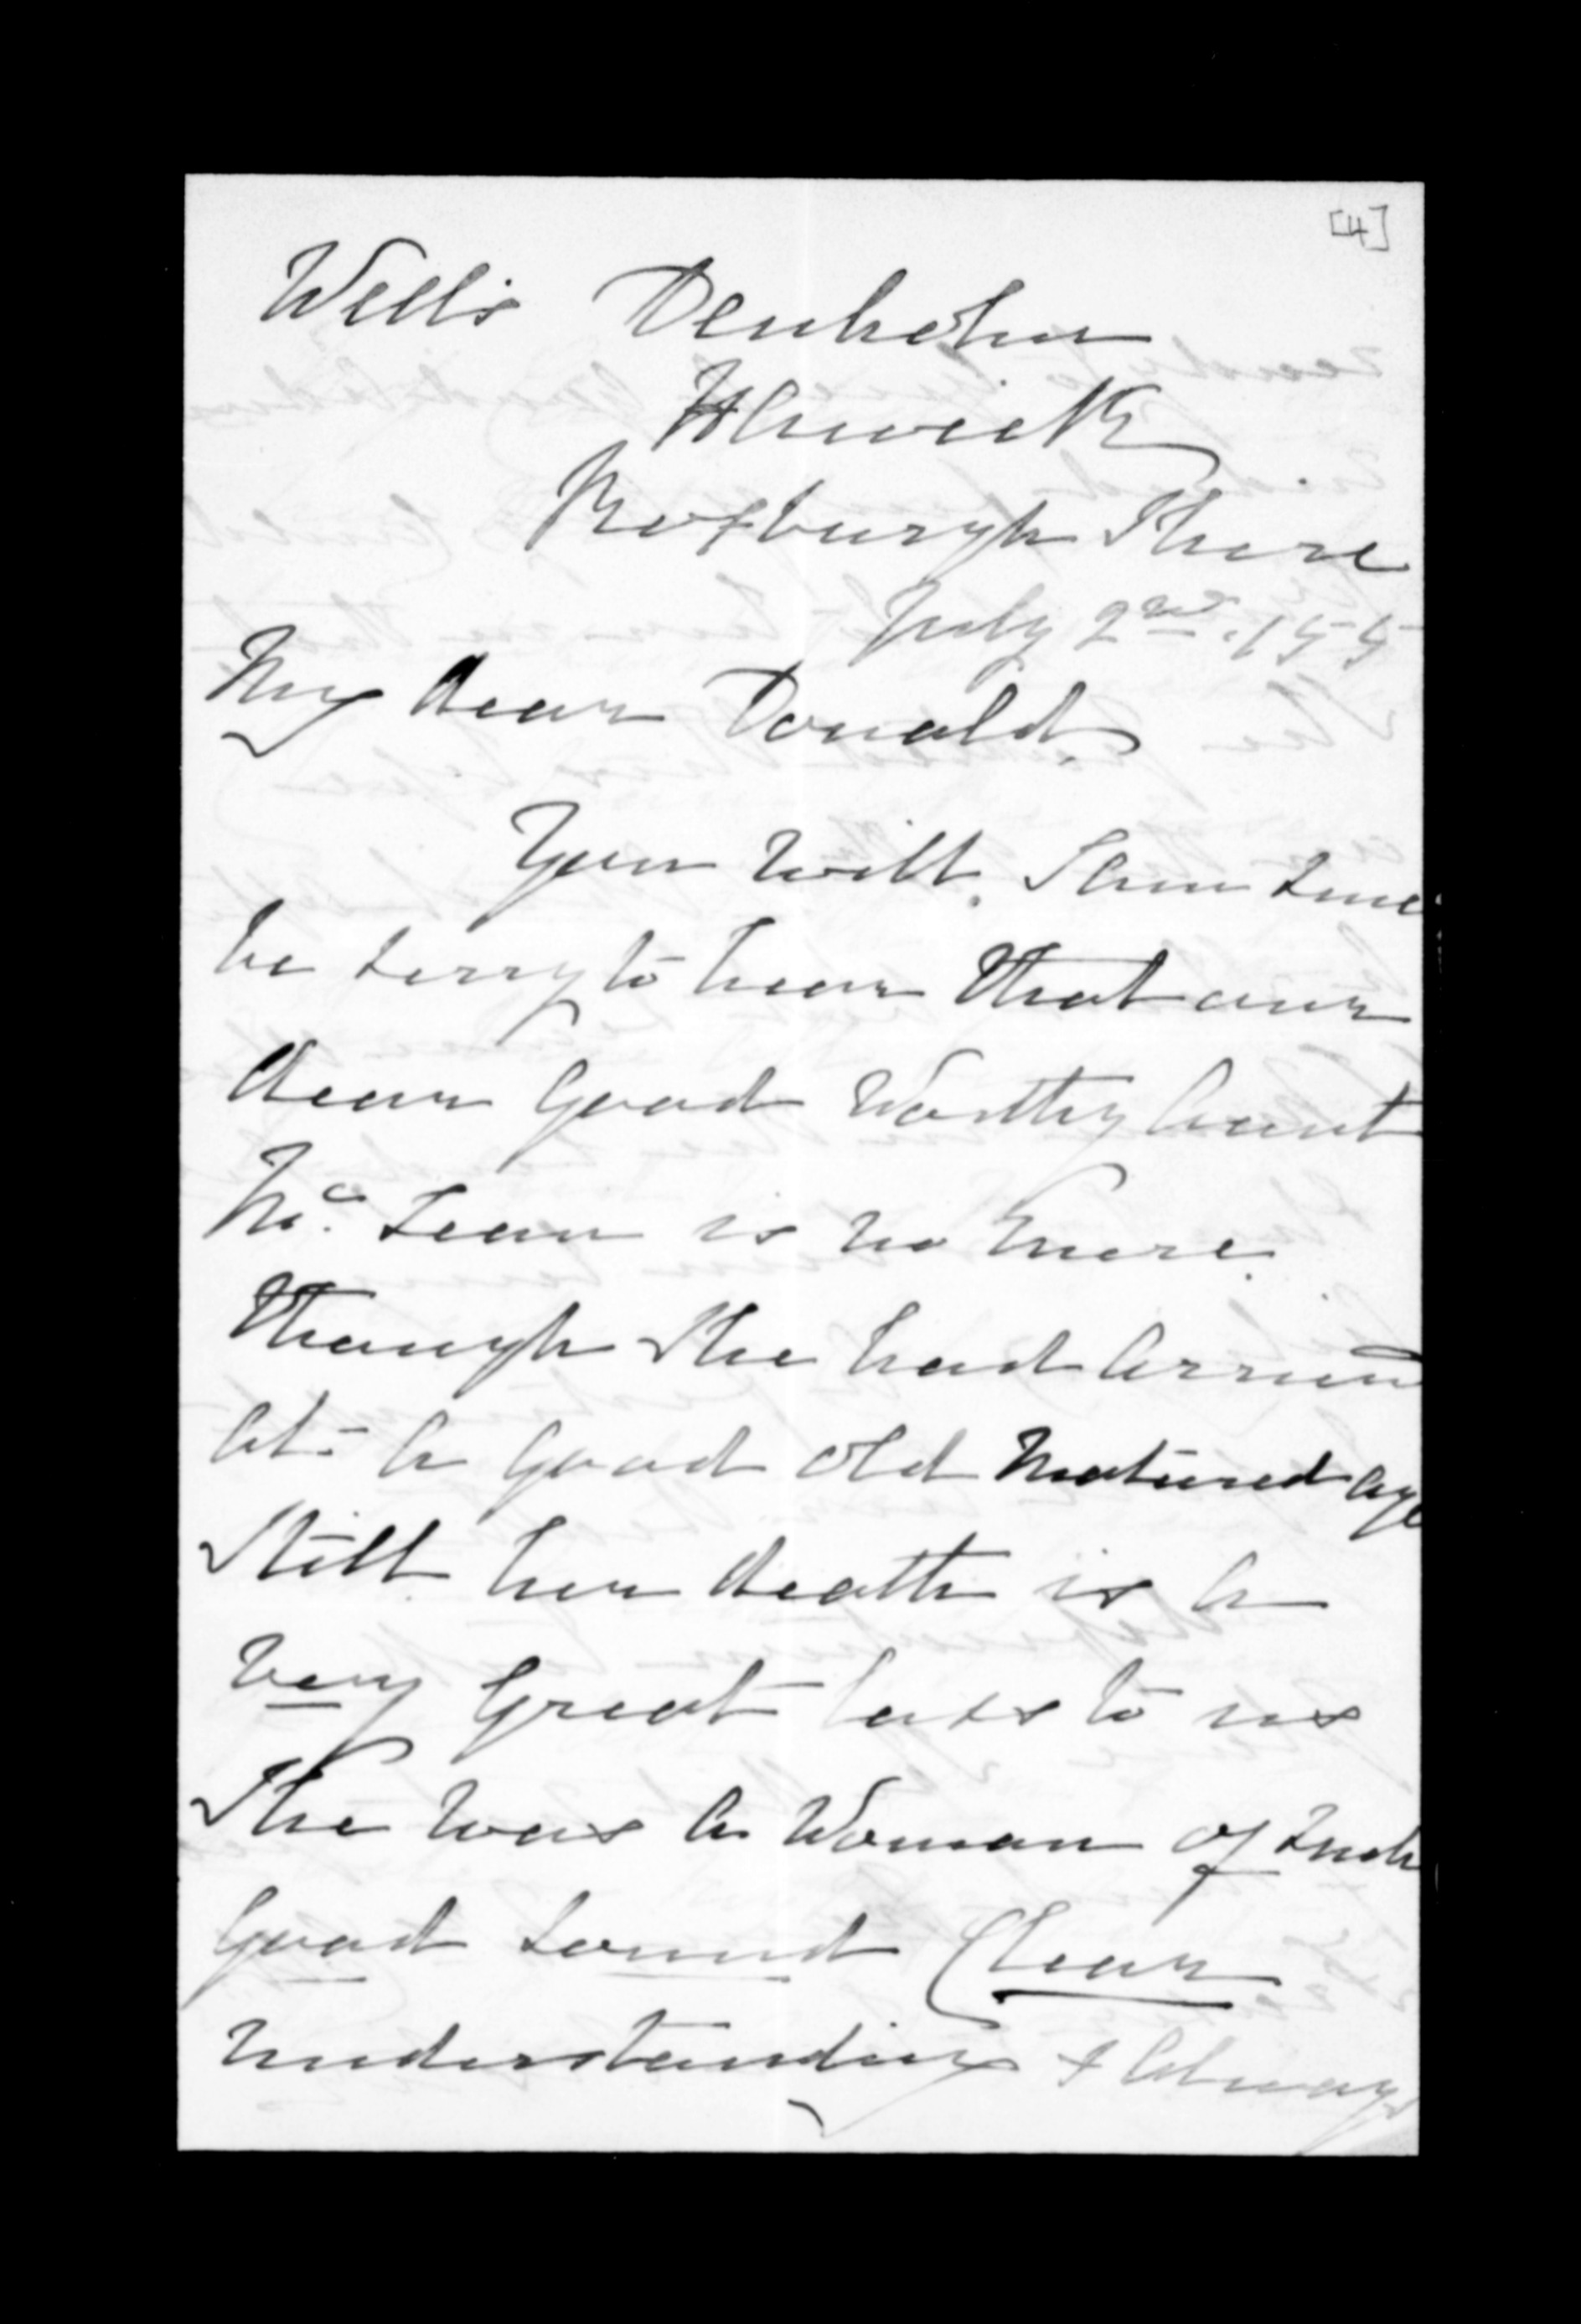 [4]
Wells Denholm
Hawick
Roxburgh Shire
July 2nd. /55
My dear Donald,
You will, I am sure
be sorry to hear that our
dear good worthy Aunt
Mc. Lean is no more.
Though She had arrived
at a good old matured age
Still her death is a
very great loss to us
She was a Woman of such
good sound Clear
understanding & always